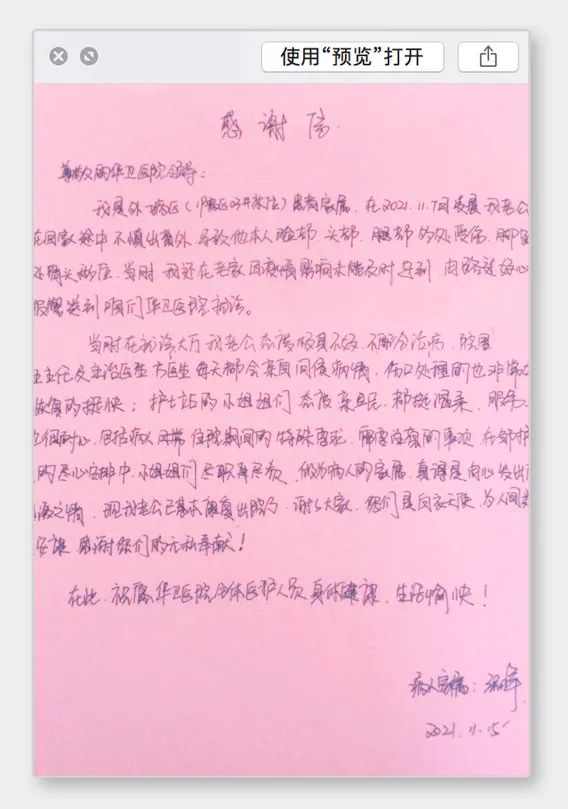 使用“预览”打开
感谢信
尊敬的华卫医院领导：
我是外一病区（ 患者家属，在2021.11.7日凌晨我老公
在回家途中不慎出意外，导致他本人脸部、头部、腿部多处受伤，脚
当时我还在老家因疫情影响未能及时赶到，由路过好心
送到咱们华卫医院就治。
当时在就诊大厅我老公态度极其不好，不配合治病，
主任及主治医生方医生每天都会亲自问候病情，伤口处理的也非常
恢复的挺快；护士站的小姐姐们态度亲且民，都挺温柔，服务
也很耐心，包括病人日常住院期间的特殊需求，需要注意的事项，在
的尽心安排中，小姐姐们尽职尽责，做为病人的家属，真得是由心发出
感激之情，现我老公已基本康复出院了，谢谢大家，您们是白衣天使，为人间
安康，感谢您们的无私奉献！
在此，祝愿华卫医院全体医护人员身体健康，生活愉快！
病人家属：
2021.11.15